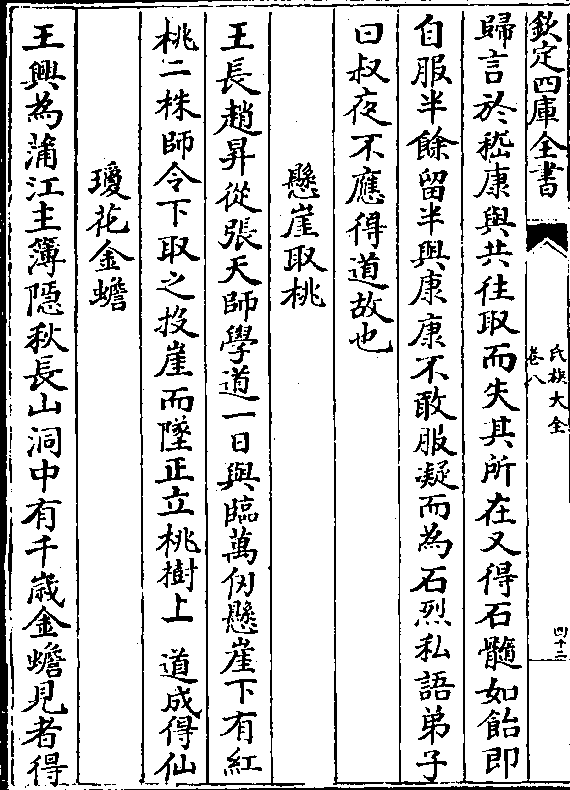 欽定四庫全書
氏族大全
卷八
四十二
歸言於嵇康與共往取而失其所在又得石髓如飴即
自服半餘留半與康康不敢服凝而為石烈私語弟子
曰叔夜不應得道故也
懸崖取桃
王長趙昇從張天師學道一日與臨萬仞懸崖下有紅
桃二株師令下取之投崖而墜正立桃樹上 道成得仙
瓊花金蟾
王興為蒲江主簿隱秋長山洞中有千歲金蟾見者得